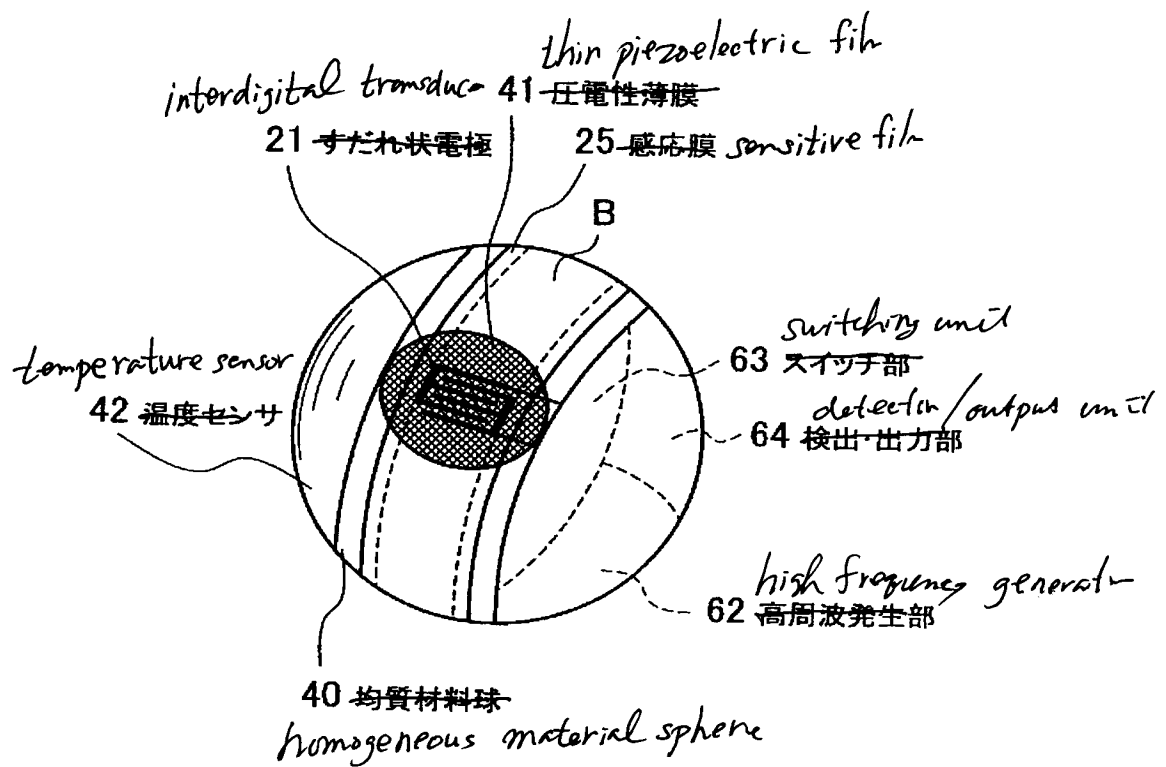 thin piezoelectric film
interdigital transducer 41 圧電性薄膜
21 すだれ状電極 25 感応膜 sensitive film
B
switching unit
63 スイッチ部
temperature sensor
42 温度センサ
detector/output unit
64 検出・出力部
high frequency generator
62 高周波発生部
40 均質材料球
homogeneous material sphere